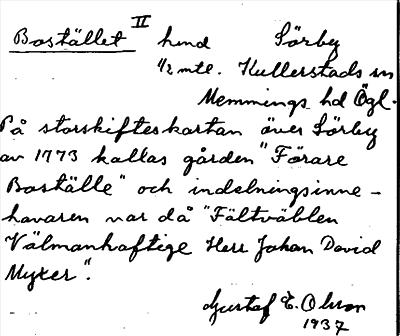 Bostället II hmd Sörby
1/2 mtl. Kullerstads sn
Memmings hd Ögl.
På storskifteskartan över Sörby
av 1773 kallas gården "Förare
Boställe" och indelningsinne-
havaren var då "Fältväblen
Välmanhaftige Herr Johan David
Myxer".
Gustaf E. Olsson
1937